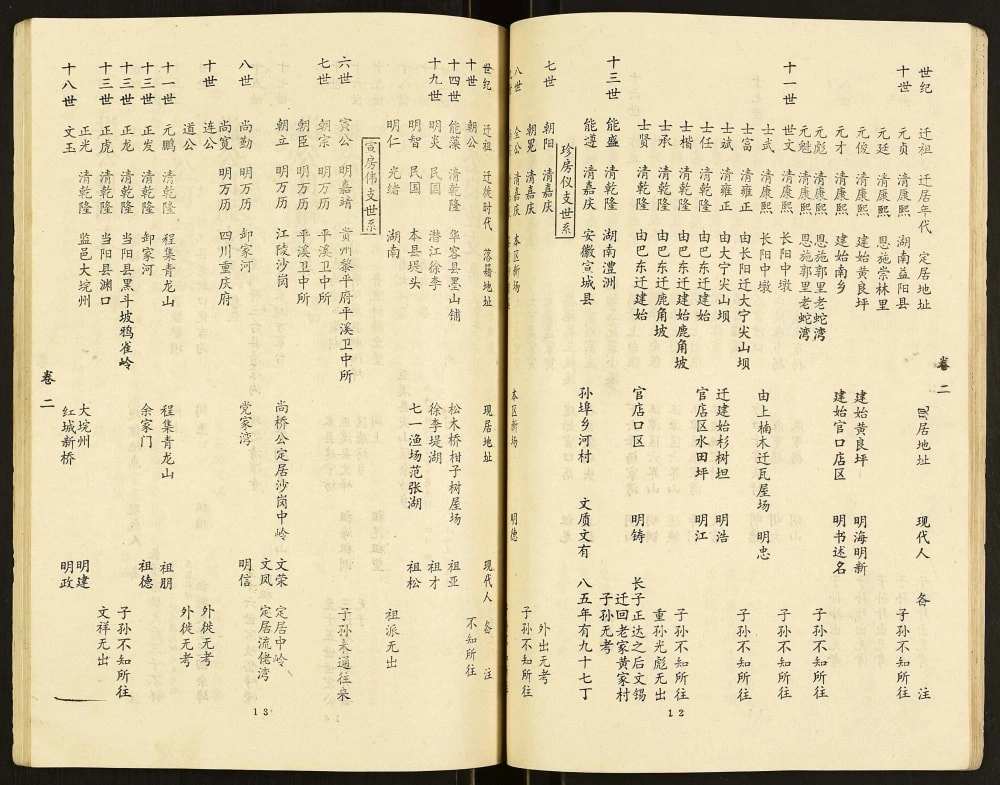 卷二
世纪 迁祖 迁居年代 定居地址 现居地址 现代人 备注
十世 元贞 清康熙 湖南益阳县 子孙不知所往
元廷 清康熙 恩施崇林里
元俊 清康熙 建始黄良坪 建始黄良坪 明海明新
元才 清康熙 建始南乡 建始官口店区 明书述名
元彪 清康熙 恩施郭里老蛇湾 子孙不知所往
元魁 清康熙 恩施郭里老蛇湾
十一世 世文 清康熙 长阳中墩
士武 清康熙 长阳中墩 由上楠木迁瓦屋场 明忠
士富 清雍正 由长阳迁大宁尖山坝 子孙不知所往
士斌 清雍正 由大宁尖山坝 迁建始杉树坦 明浩
士任 清乾隆 由巴东迁建始 官店区水田坪 明江
士楷 清乾隆 由巴东迁建始鹿角坡 子孙不知所往
士承 清乾隆 由巴东迁鹿角坡 重孙光彪无出
士贤 清乾隆 由巴东迁建始 官店口区 明铸 长子正达之后文锡迁回老家黄家村
十三世 能盛 清乾隆 湖南澧洲 子孙无考
能遵 清嘉庆 安徽宣城县 孙埠乡河村 文质文有 八五年有九十七丁
珍房仪支世系
七世 朝阳 清嘉庆 外出无考
朝冕 清嘉庆 子孙不知所往
八世 全公 清嘉庆 本区新场 本区新场 明德
12
世纪 迁祖 迁徙时代 落籍地址 现居地址 现代人 备注
十世 朝公 不知所往
十四世 能藻 清乾隆 华容县墨山铺 松木桥柑子树屋场 祖亚
十九世 明炎 民国 潜江徐李 徐李堤湖 祖才
明智 民国 本县堤头 七一渔场范张湖 祖松
明仁 光绪 湖南 祖派无出
宣房伟支世系
六世 寅公 明嘉靖 贵州黎平府平溪卫中所 子孙未通往来
七世 朝宗 明万历 平溪卫中所
朝臣 明万历 平溪卫中所
朝立 明万历 江陵沙岗 尚桥公定居沙岗中岭 文荣 定居中岭
文凤 定居流佬湾
八世 尚勤 明万历 卸家河 党家湾 明信
尚宽 明万历 四川重庆府
十世 连公 外徙无考
道公 外徙无考
十一世 元鹏 清乾隆 程集青龙山 程集青龙山 祖朋
十三世 正发 清乾隆 卸家河 余家门 祖德
十三世 正龙 清乾隆 当阳县黑斗坡鸦雀岭 子孙不知所往
十三世 正虎 清乾隆 当阳县渊口 文祥无出
正光 清乾隆 监邑大垸州 大垸州 明建
十八世 文玉 红城新桥 明政
卷二
13